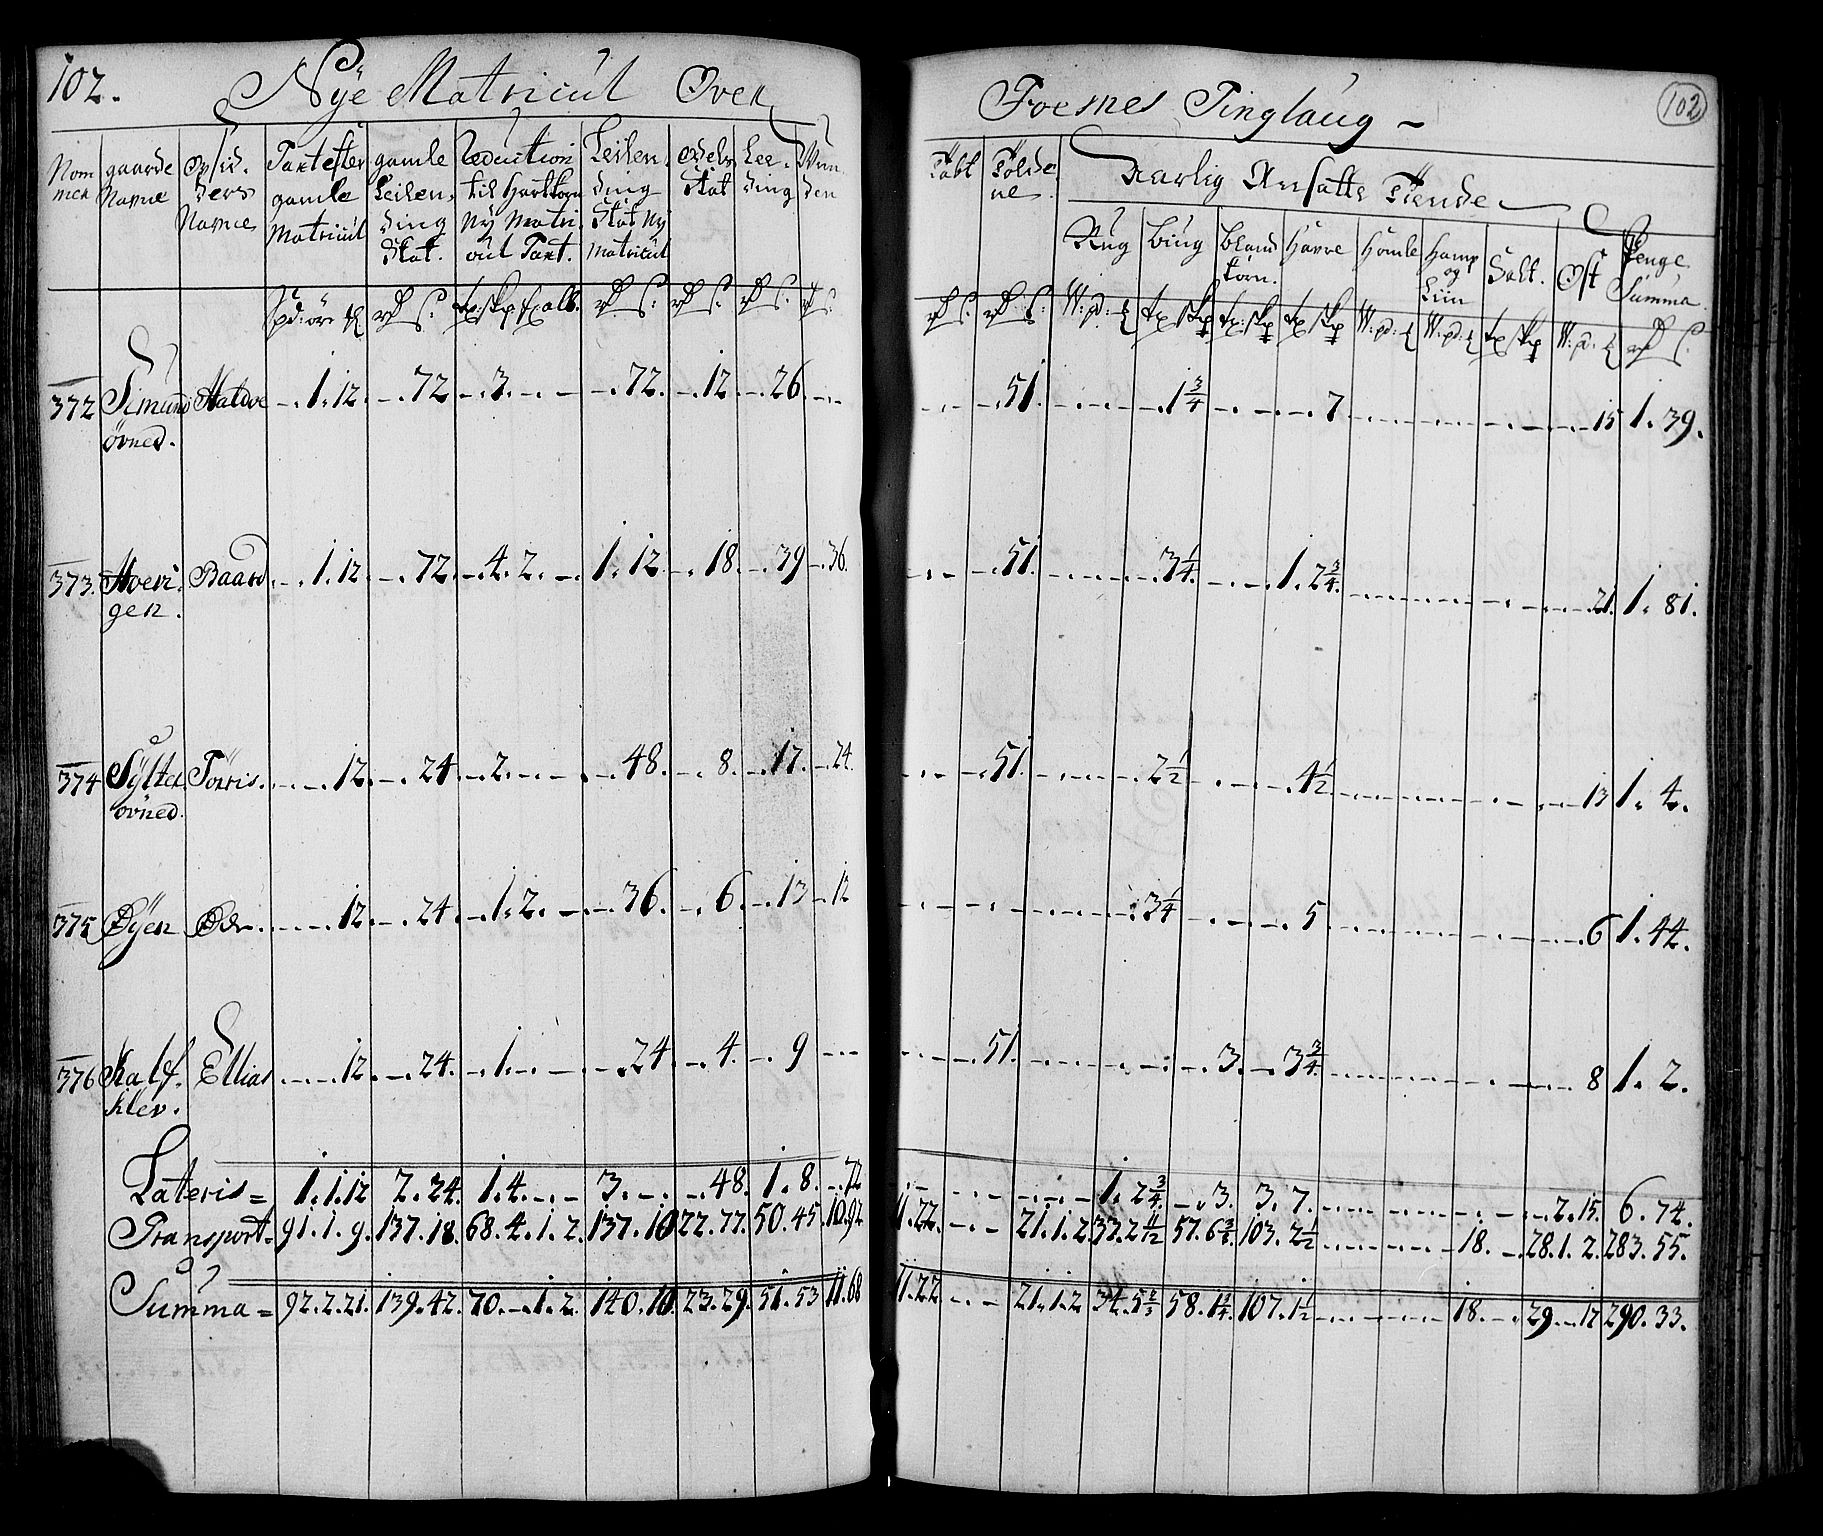 102. Nÿe Matricul Over
Foesnes Tinglaug –
102
Nom mer | gaarde Navne | Opsid. ders Navne | Taxt efter gamle Matricul | gamle Leilen, ding Skat. | Reduction til Hartkorn Nÿ Matri cul Taxt. | Leilen, ding Skat Nÿ Matricul | Odels Skat | Lee, ding
Told | Aarlig Ansatte Tiende
Rug | Biug | Bland korn. | Havre | Homle | Hamp og Liin | Salt. | Ost | Penge Summa
372 Simund Haldve 1. 12. 72 3. 72. 12 26 51. 1 3/4 7 15 1. 39.
øvned.
373. Hoevi Baard 1. 12 72. 4. 2. 1. 12 18. 39 36. 51. 3 1/4 1. 2 3/4. 21. 1. 81.
gen.
374 Sÿlter Torris. 12. 24 2. 48. 8. 17. 24. 51. 2 1/2 4 1/2 13 1. 4.
øvned.
375 Øÿen Ode 12. 24. 1. 2. 36. 6. 13 12 3 1/4 5 6 1. 44.
376 Kalf. Ellias 12. 24. 1. 24. 4. 9 51. 3. 3 3/4 8 1. 2.
klev.
Lateris = 1. 1. 12 2. 24. 1. 4. 3. 48. 1. 8. 72 1. 2 3/4. 3. 3. 7. 2. 15. 6. 74.
Transport = 91. 1. 9. 137. 18. 68. 4. 1. 2. 137. 10 22. 77. 50. 45. 10. 92 11. 22. 21. 1. 2. 57. 6 103. 2 1/2 18. 28. 1. 2. 283. 55.
Summa = 92. 2. 21. 139. 42. 70. 1. 2. 140. 10. 23. 29. 51. 53 11. 68 11. 22 21. 1. 2 34. 5 58. 1 107. 1 1/2 18. 29. 17 290. 33.